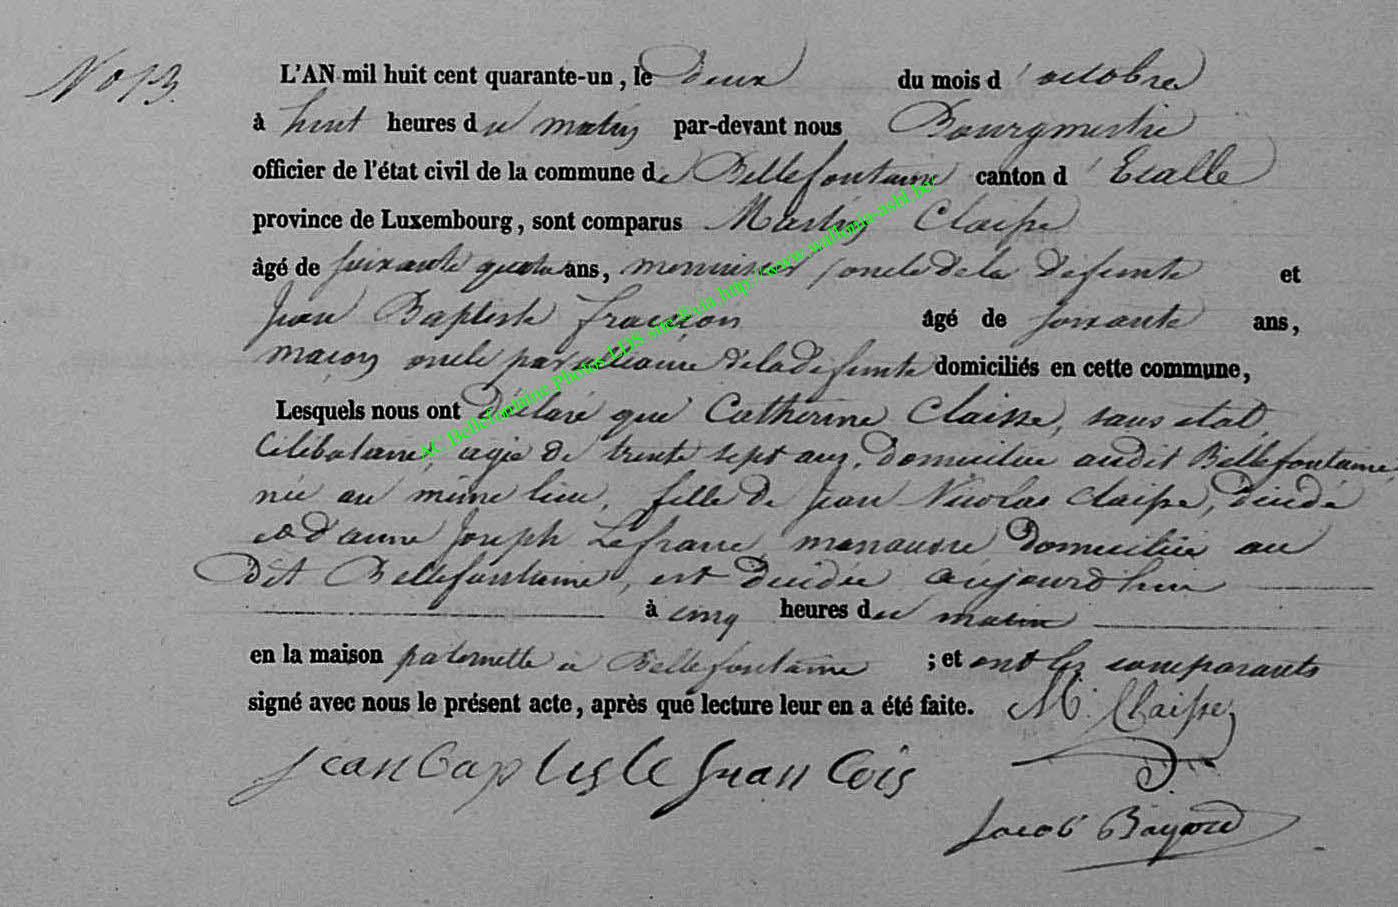 No 13.
L'AN mil huit cent quarante-un, le deux du mois d'octobre
à huit heures du matin par-devant nous Bourgmestre
officier de l'état civil de la commune de Bellefontaine canton d'Etalle
province de Luxembourg, sont comparus Martin Claisse
âgé de soixante quatre ans, menuisier, oncle de la défunte et
Jean Baptiste François âgé de soixante ans,
maçon oncle par alliance de la défunte domiciliés en cette commune,
Lesquels nous ont déclaré que Catherine Claisse, sans état,
Célibataire, agée de trente sept ans, domiciliée audit Bellefontaine,
née au même lieu, fille de Jean Nicolas Claisse, décédé
et d'anne Joseph Lefranc, manœuvre domiciliée au
dit Bellefontaine, est décédée aujourd'hui
à cinq heures du matin
en la maison paternelle à Bellefontaine ; et ont les comparants
signé avec nous le présent acte, après que lecture leur en a été faite. M. Claisse
jean baptiste francois
Jacob Bayard
AC Bellefontaine Photos LDS via http://www.wallonia-asbl.be/